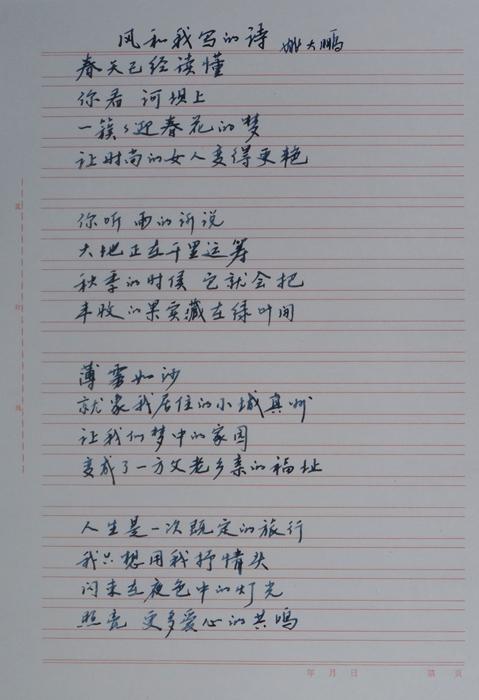 风和我写的诗 姚大鹏
春天已经读懂
你看 河坝上
一簇簇迎春花的梦
让时尚的女人变得更艳
你听 雨的诉说
大地正在千里运筹
秋季的时候 它就会把
丰收的果实藏在绿叶间
薄雾如沙
就象我居住的小城真州
让我们梦中的家园
变成了一方父老乡亲的福址
人生是一次既定的旅行
我只想用我抒情头
闪来在夜色中的灯光
照亮 更多爱心的共鸣
年 月 日 第 页